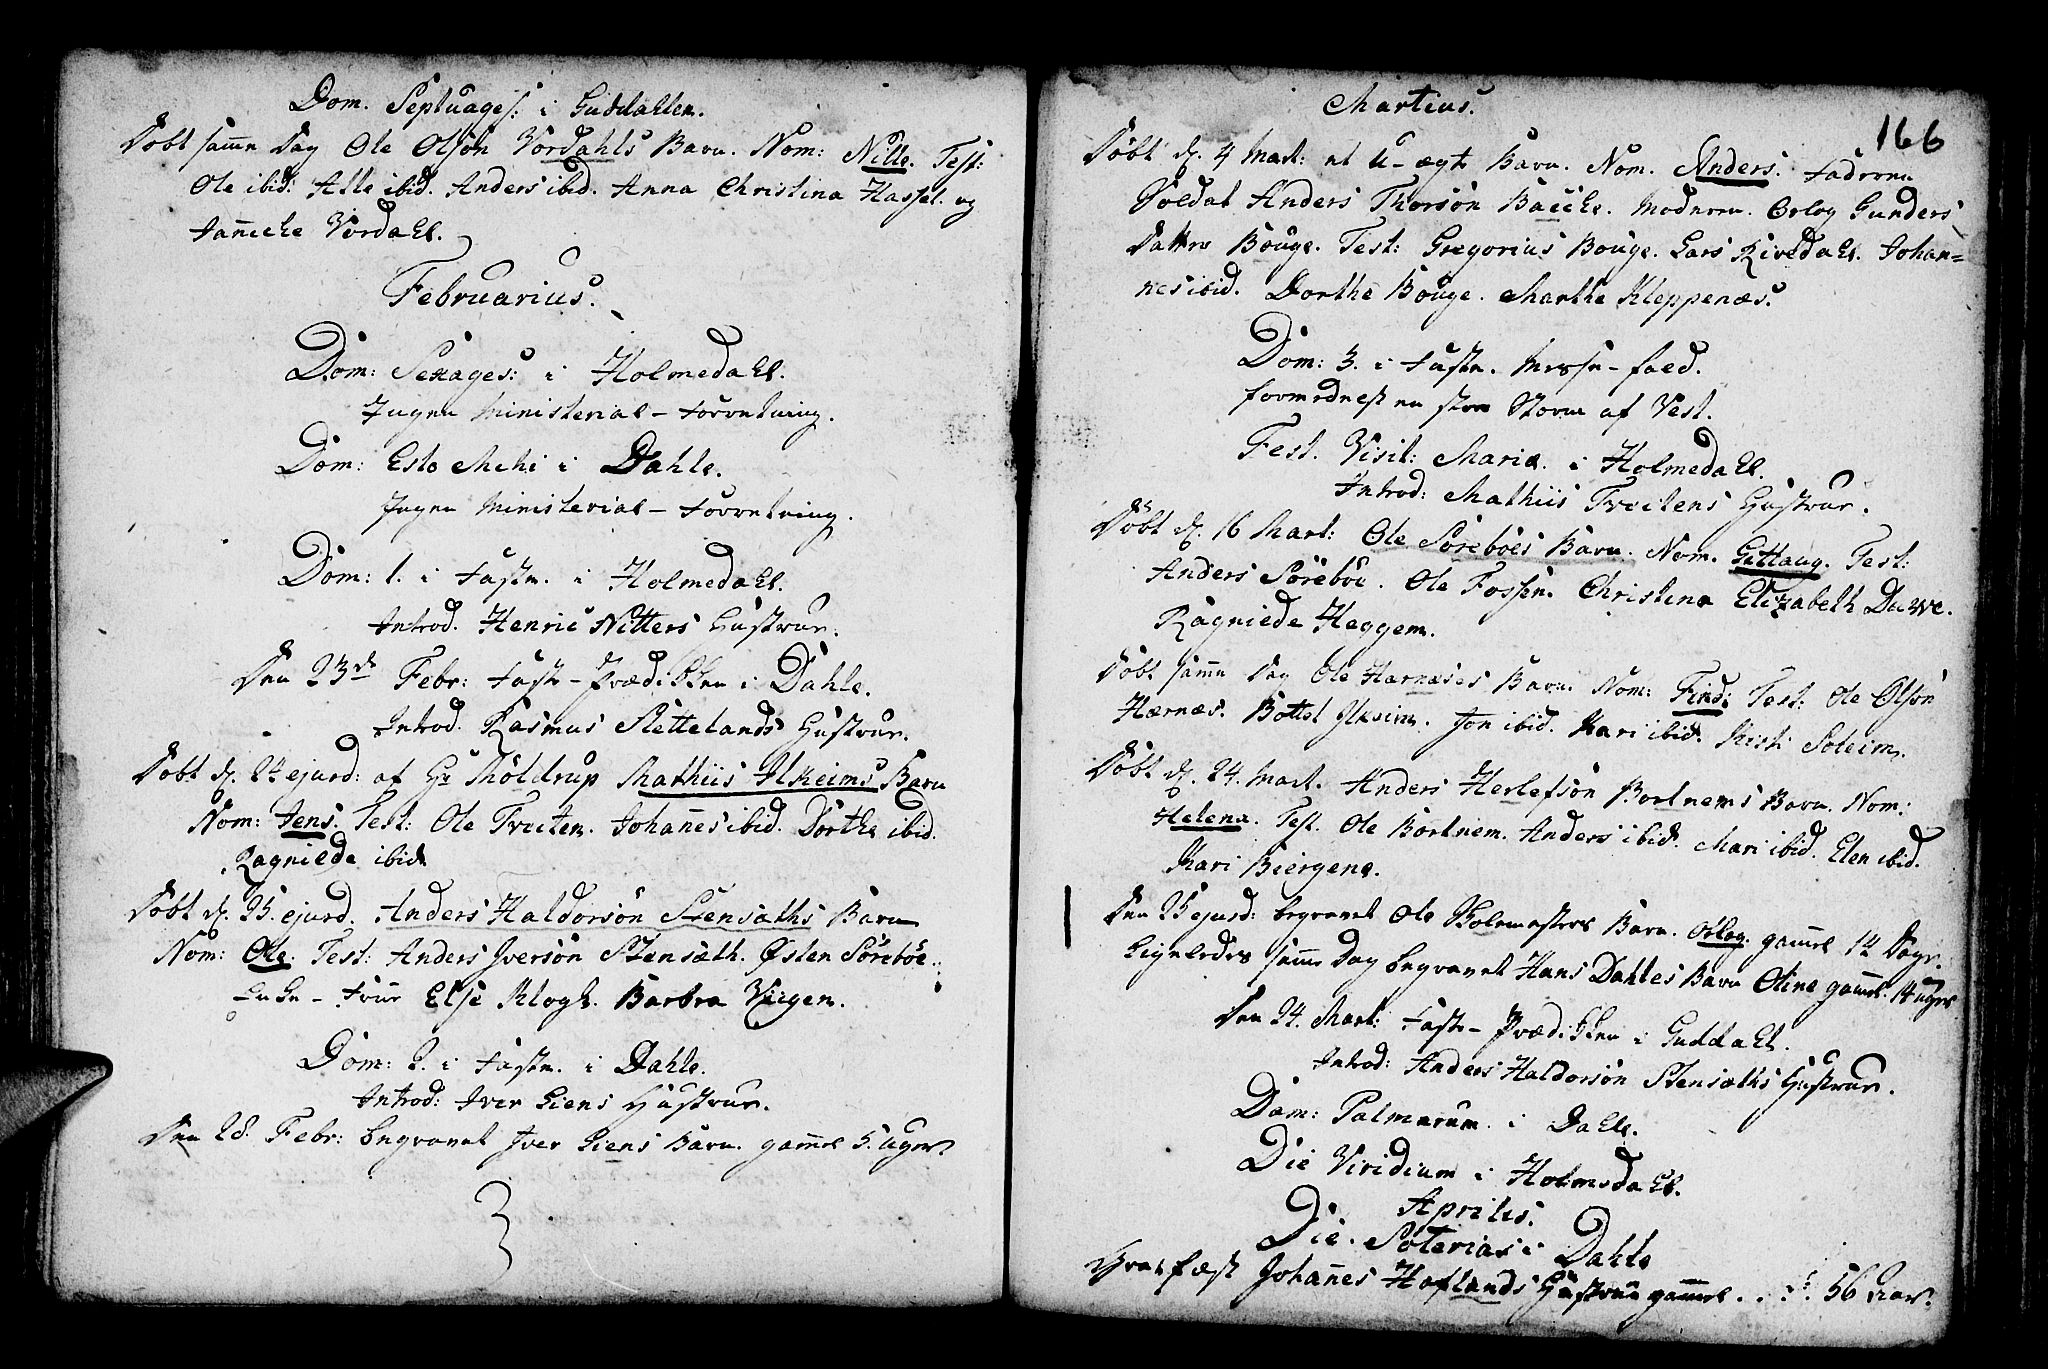 Dom. Septuages: i Guddahlen.
Döbt samme Dag Ole Olsön Vordahls Barn. Nom: Nille. Test:
Ole ibid: Atle ibid. Anders ibid. Anna Christina Hassel. og
Janniche Vordahl.
Februarius.
Dom: Sexages: i Holmedahl.
Ingen Ministerial-Forretning.
Dom: Esto Mihi i Dahle.
Ingen Ministerial-Forretning.
Dom: 1. i Fasten. i Holmedahl.
Introd. Henric Nitters Hustrue.
Den 23de Febr: Faste-Prædikken i Dahle.
Introd. Rasmus Slettelands Hustrue.
Döbt d. 24 ejusd: af Hr Thöldrup Mathiis Ilkeims Barn
Nom: Jens. Test: Ole Tveiten. Johannes ibid. Dorthe ibid.
Ragnilde ibid.
Döbt d. 25. ejusd. Anders Haldorsön Stensæths Barn
Nom: Ole. Test: Anders Iversön Stensæth. Østen Söreböe.
Enke-Frue Else Klogh. Barbra Viigen.
Dom: 2. i Fasten. i Dahle.
Introd: Iver Liens Hustrue.
Den 28. Febr: begravet Iver Liens Barn. gammel 5. uger.
166
Martius.
Döbt d. 4 Mart: et U-ægte Barn. Nom. Anders. Faderen
Soldat Anders Thorsön Bacche. Moderen. Orlog Gunders
Datter Bouge. Test: Gregorius Bouge. Lars Rivedahl. Johan=
nes ibid. Dorthe Bouge. Marthe Kleppenæs.
Dom: 3. i Fasten. Messe-fald.
formedelst en stor Storm af Vest.
Fest. Visit: Mariæ. i Holmedahl.
Introd: Mathiis Tveitens Hustrue.
Döbt d. 16 Mart: Ole Söreböes Barn. Nom. Gittaug. Test:
Anders Söreböe. Ole Fossen. Christina Elizabeth Dawe.
Ragnilde Heggem.
Döbt samme Dag Ole Hærnæses Barn. Nom: Find: Test: Ole Olsön
Hærnæs. Bottel Ilkeim. Jon ibid. Kari ibid. Kisti Soleim.
Döbt d. 24. Mart. Anders Herlefsön Bortnems Barn. Nom:
Helena. Test. Ole Bortnem. Anders ibid. Mari ibid. Elen ibid.
Kari Biergene.
Den 25 ejusd: begravet Ole Skolemesters Barn. Orlog. gammel 14 Dage.
Ligeledes samme Dag begravet Hans Dahles Barn Oline gammel. 14 uger
Den 24. Mart: Faste-Prædikken i Guddahl.
Introd: Anders Haldorsön Stensæths Hustrue.
Dom: Palmarum. i Dahle.
Die Viridium i Holmedahl.
Aprilis.
Die. Soterias i Dahle
Gravfæst Johannes Hoflands Hustrue gammel . . . 56 Aar.